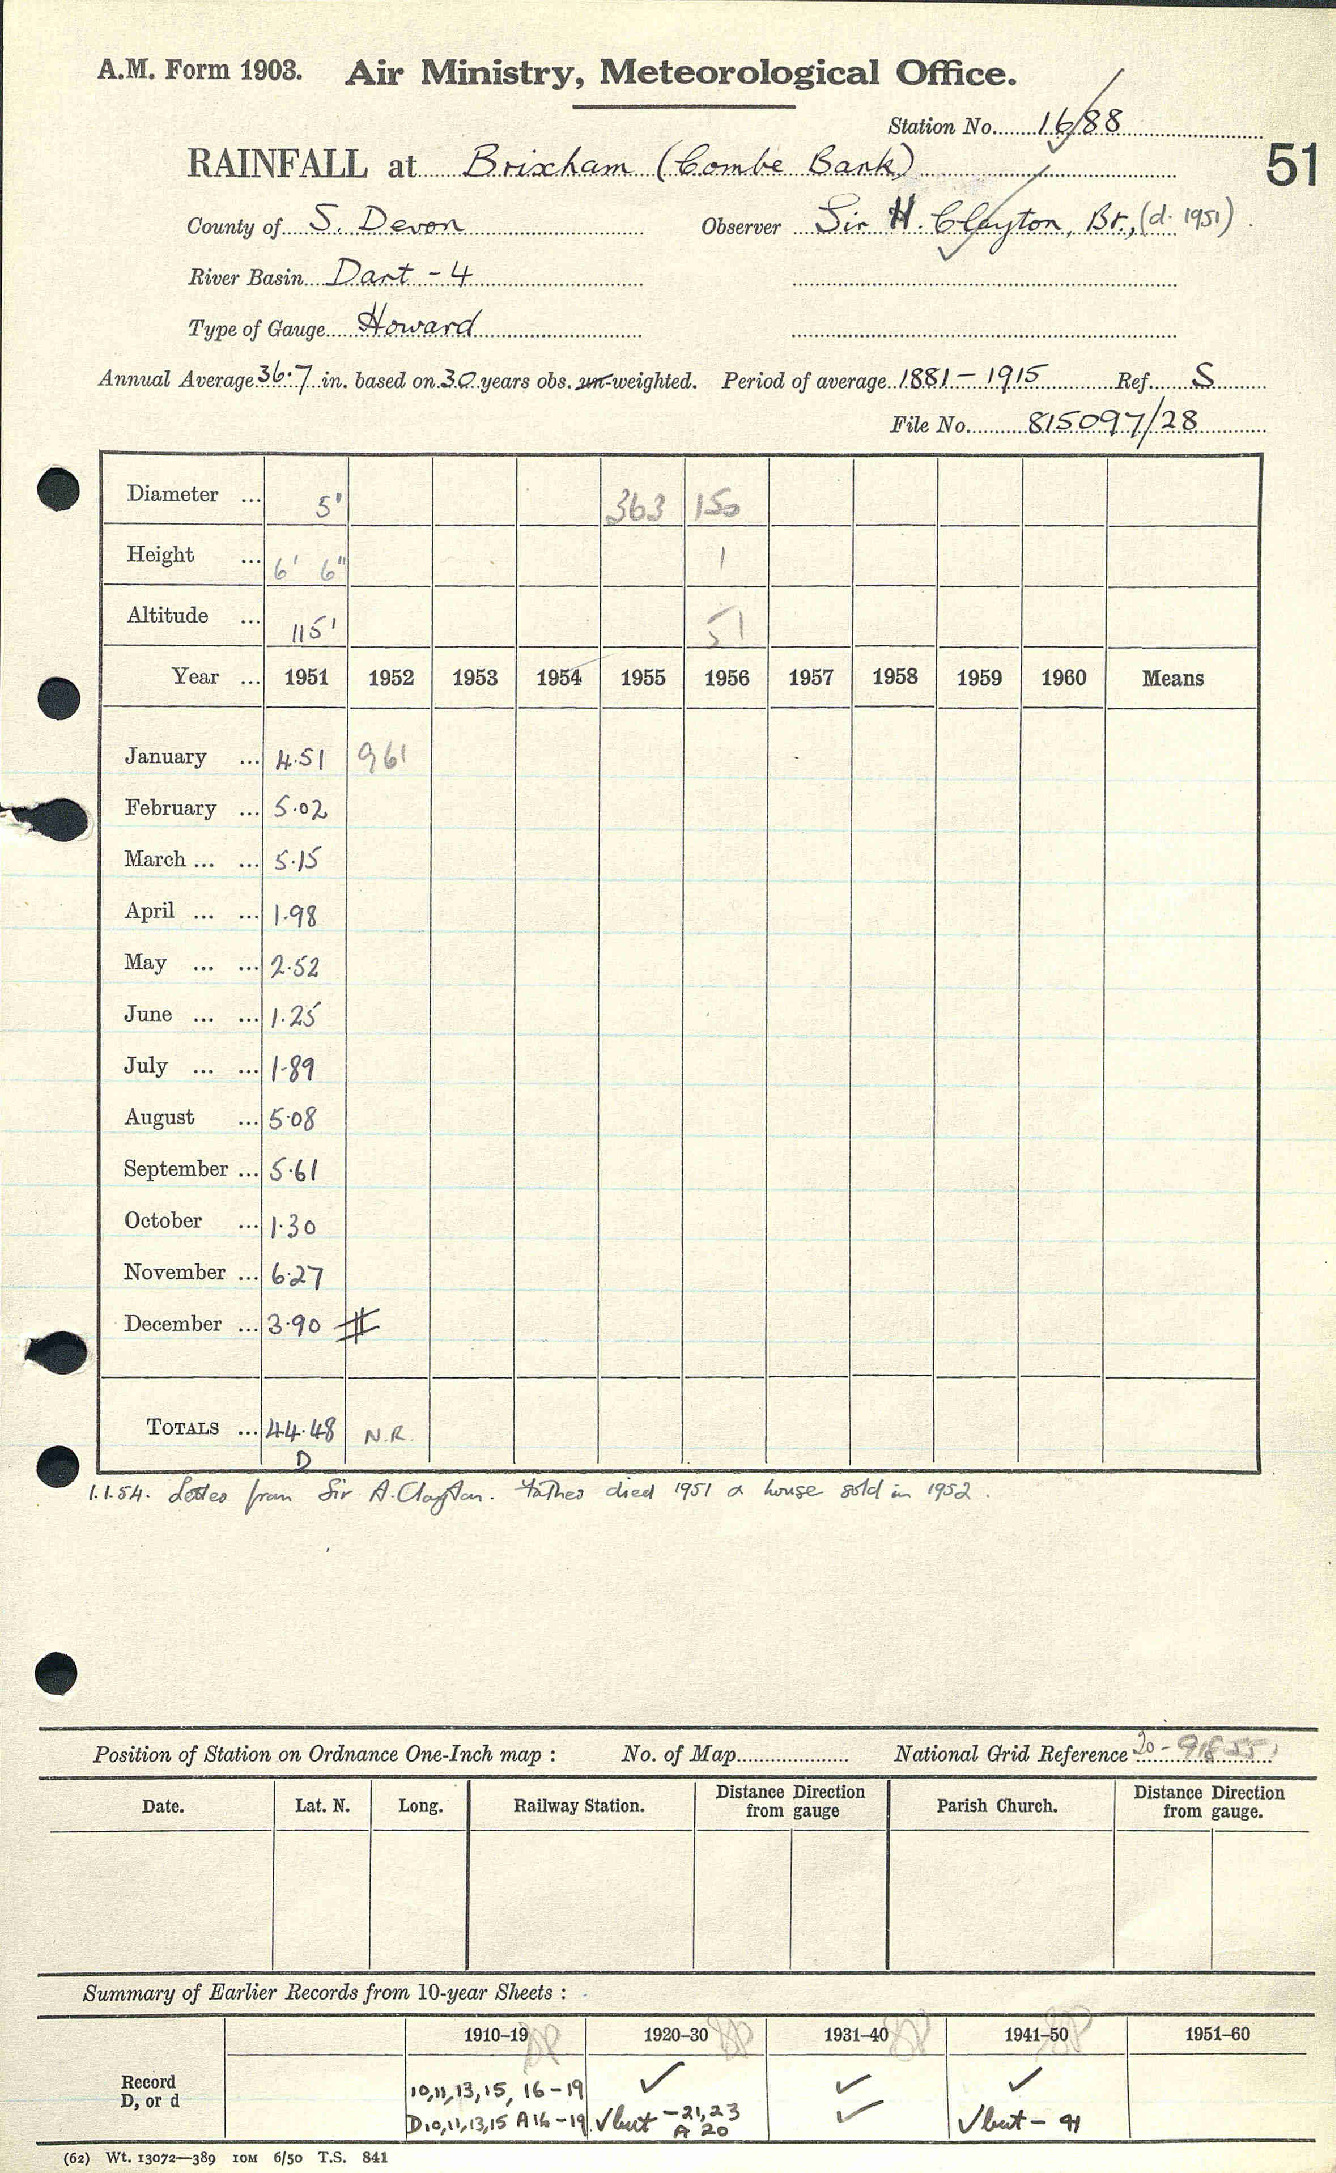 A.M. Form 1903. Air Ministry, Meteorological Office.
Station No. 1688
51
RAINFALL at Brixham (Combe Bank)
County of S. Devon Observer Sir H. Clayton, Br., (d. 1951)
River Basin Dart - 4
Type of Gauge Howard
Annual Average 36.7 in. based on 30 years obs. un-weighted. Period of average 1881 - 1915 Ref. S
File No. 815097/28
Diameter ... 5" 363 150
Height ... 6' 6" 1
Altitude ... 115' 51
Year ... 1951 1952 1953 1954 1955 1956 1957 1958 1959 1960 Means
January ... 4.51 961
February ... 5.02
March ... ... 5.15
April ... ... 1.98
May ... ... 2.52
June ... ... 1.25
July ... ... 1.89
August ... 5.08
September ... 5.61
October ... 1.30
November ... 6.27
December ... 3.90
TOTALS ... 44.48 N.R.
D
1.1.54. Letter from Sir A. Clayton. Father died 1951 & house sold in 1952.
Position of Station on Ordnance One-Inch map : No. of Map National Grid Reference 20 - 918 551
Date. Lat. N. Long. Railway Station. Distance from gauge Direction Parish Church. Distance from gauge. Direction
Summary of Earlier Records from 10-year Sheets :
1910-19 1920-30 1931-40 1941-50 1951-60
Record 10,11,13,15, 16-19 ✓ ✓ ✓
D, or d D10,11,13,15 A16-19 ✓ but -21,23 A 20 ✓ ✓ but - 41
(62) Wt. 13072—389 10M 6/50 T.S. 841